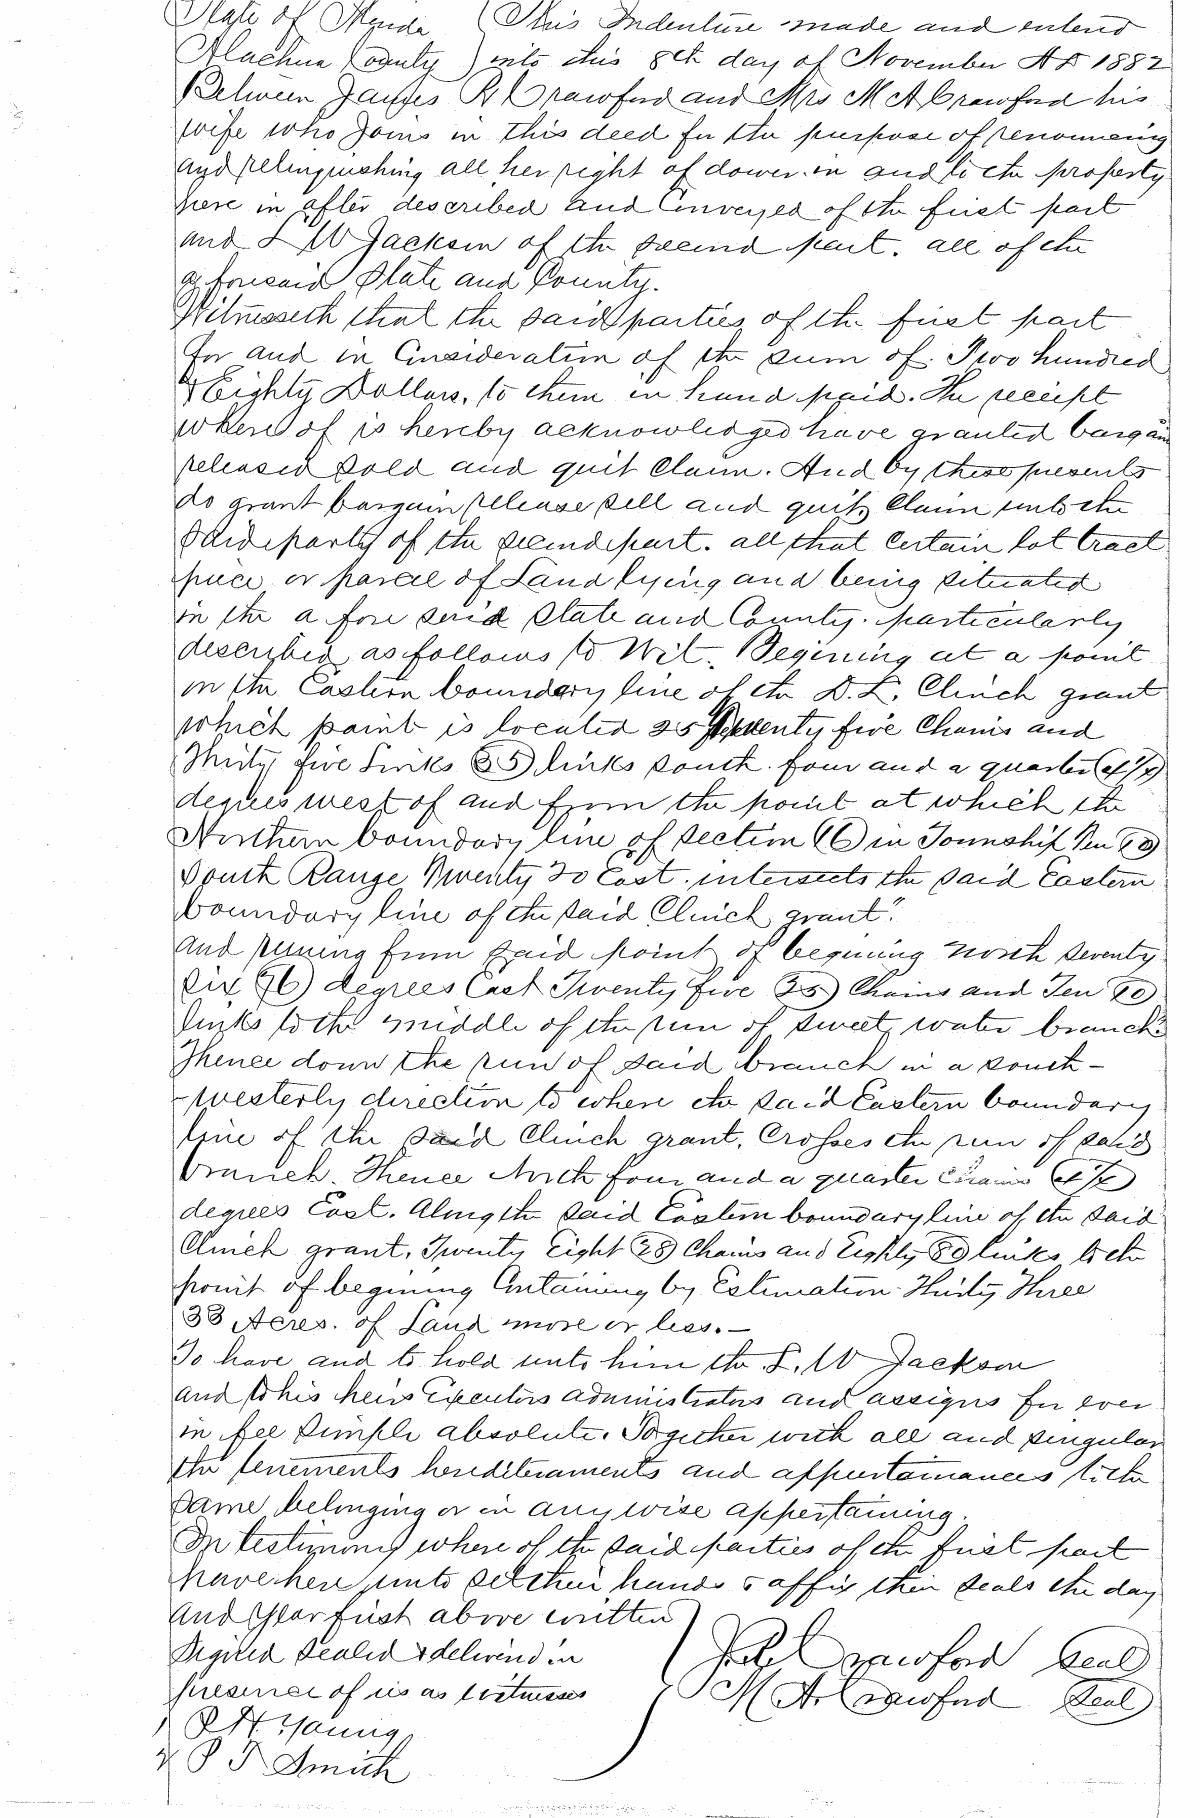 State of Florida ( This Indenture made and enterd
Alachua County ) into this 8th day of November AD 1882
Between James B Crawford and Mrs M A Crawford his
wife who joins in this deed for the purpose of renouncing
and relinquishing all her right of dower in and to the property
here in after described and Conveyed of the first part
and L W Jackson of the second part. all of the
aforesaid State and County.
Witnesseth that the said parties of the first part
for and in Consideration of the sum of Two hundred
& Eighty Dollars, to them in hand paid. The receipt
where of is hereby acknowledged have granted bargain
released sold and quit Claim. And by these presents
do grant bargain release sell and quit Claim unto the
Said party of the second part. all that Certain lot tract
piece or parcel of Land lying and being situated
in the a fore said State and County. particularly
described as follows to Wit. Begining at a point
in the Eastern boundary line of the D. L. Clinch grant
which point is located 25 Twenty five Chains and
Thirty five Links (35) links south four and a quarter (4 1/4)
degrees west of and from the point at which the
Northern boundary line of section (16) in Township Ten (10)
South Range Twenty 20 East intersects the said Eastern
boundary line of the said Clinch grant.
and runing from said point of begining north seventy
six (76) degrees East Twenty five (25) Chains and Ten (10)
links to the middle of the run of sweet water branch
Thence down the run of said branch in a south-
-westerly direction to where the said Eastern boundary
line of the said Clinch grant. Crosses the run of said
branch. Thence North four and a quarter chains (4 1/4)
degrees East. Along the said Eastern boundary line of the said
Clinch grant, Twenty Eight (28) Chains and Eighty (80) links to the
point of begining Containing by Estimation Thirty Three
33 Acres. of Land more or less.—
To have and to hold unto him the L. W Jackson
and to his heirs Executors administrators and assigns for ever
in fee simple absolute. Together with all and singular
the tenements herediteraments and appurtainances to the
same belonging or in any wise appertaining.
In testimony where of the said parties of the first part
have here unto set their hands & affix their seals the day
and Year first above written
Signed sealed & deliverd in
presence of us as witnesses
Crawford Seal
M A Crawford Seal
1 R H. Young
2 P T Smith